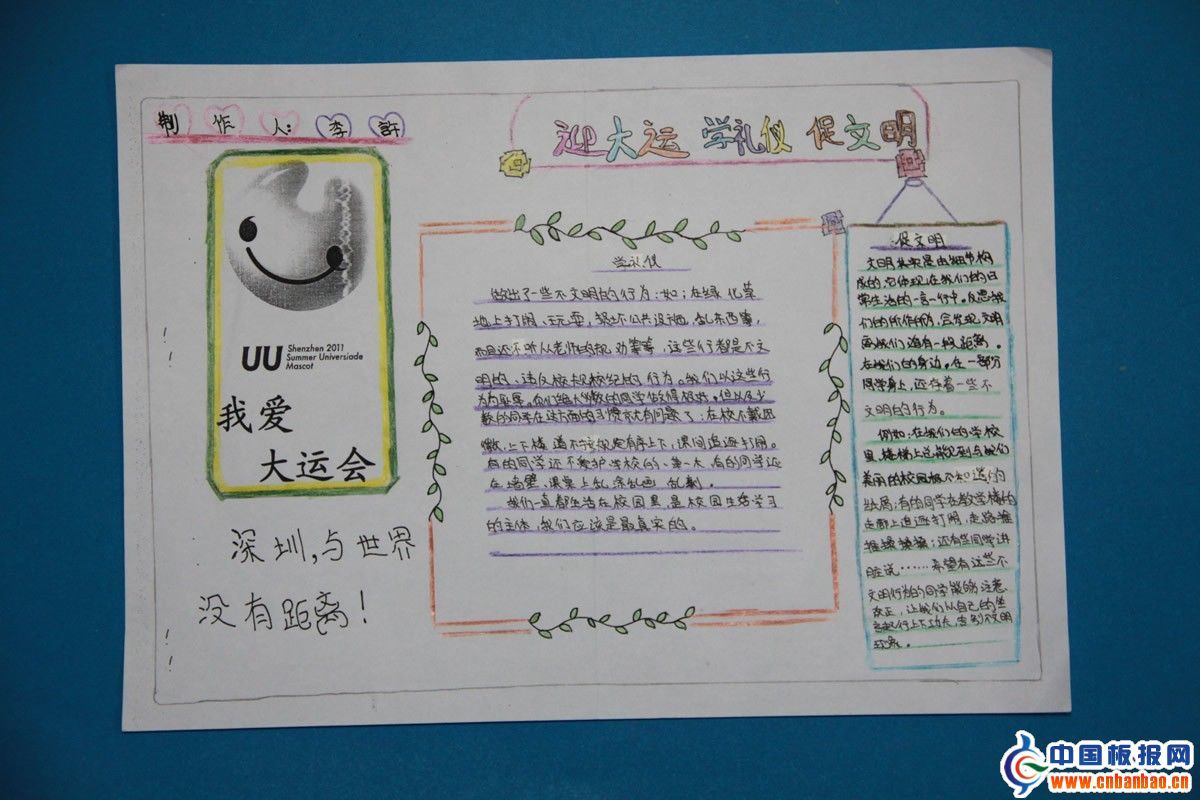 制作人:李許
迎大运 学礼仪 促文明
UU Shenzhen 2011
Summer Universiade
Mascot
我爱
大运会
深圳,与世界
没有距离!
学礼仪
做出了一些不文明的行为:如:在绿化草
地上打闹、玩耍,毁坏公共设施,乱东西事,
而且还不听从老师的规劝等等,这些行都是不文
明的、违反校规校纪的行为。我们以这些行
的同学在这方面的习惯就大有问题了:在校不戴团
徽,上下楼道不按规定有序上下;课间追逐打闹。
有的同学还不爱护学校的一草一木,有的同学还
在墙壁、课桌上乱涂乱画、乱刻。
我们一直都生活在校园里,是校园生活学习
的主体,我们应该是最真实的。
促文明
文明其实是由细节构
成的,它体现在我们的日
常生活的一言一行中。反思我
们的所作所为,会发现文明
离我们还有一段距离。
在我们的身边,在一部分
同学身上,还存着一些不
文明的行为。
例如:在我们的学校
里,楼梯上总能见到与我们
美丽的校园极不和谐的
纸屑;有的同学在教学楼的
走廊上追逐打闹,走路推
推搡搡;还有些同学讲
脏说……希望有这些不
文明行为的同学能够注意
改正,让我们从自己的坐
言起行上下功夫,告别不文明
现象。
中国板报网
www.cnbanbao.cn